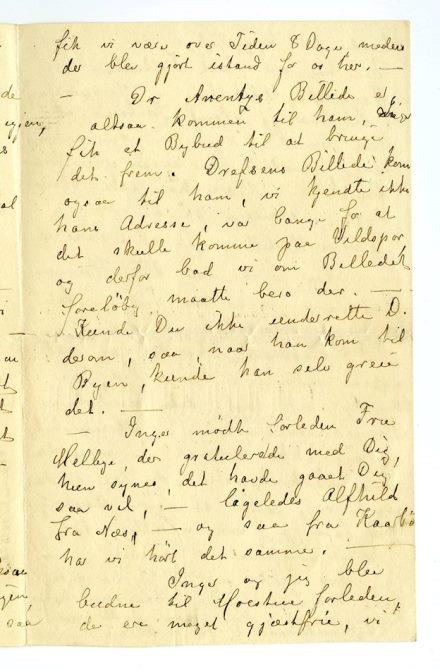 fik vi være over Tiden 8 Dage, medens
der blev gjort istand for os her. —
— Dr Arentzs Billede er
altsaa kommen til ham,
fik et Bybud til at bringe
det frem. Drefsens Billede kom
ogsaa til ham, vi kjendte ikke
hans Adresse, var bange for at
det skulle komme paa Vildspor
og derfor bad vi om Billedet
foreløbig maatte bero der. —
Kunde Du ikke underrette D.
derom, saa, naar han kom til
Byen, kunde han selv greie
det. —
— Inger mødte forleden Fru
Mellbye, der gratulerede med Dig,
hun synes, det havde gaaet Dig
saa vel, — ligeledes Alfhild
fra Næs, — og saa fra Kaarbø
har vi hørt det samme. —
Inger og jeg blev
budne til forleden,
de ere meget gjæstfrie, vi